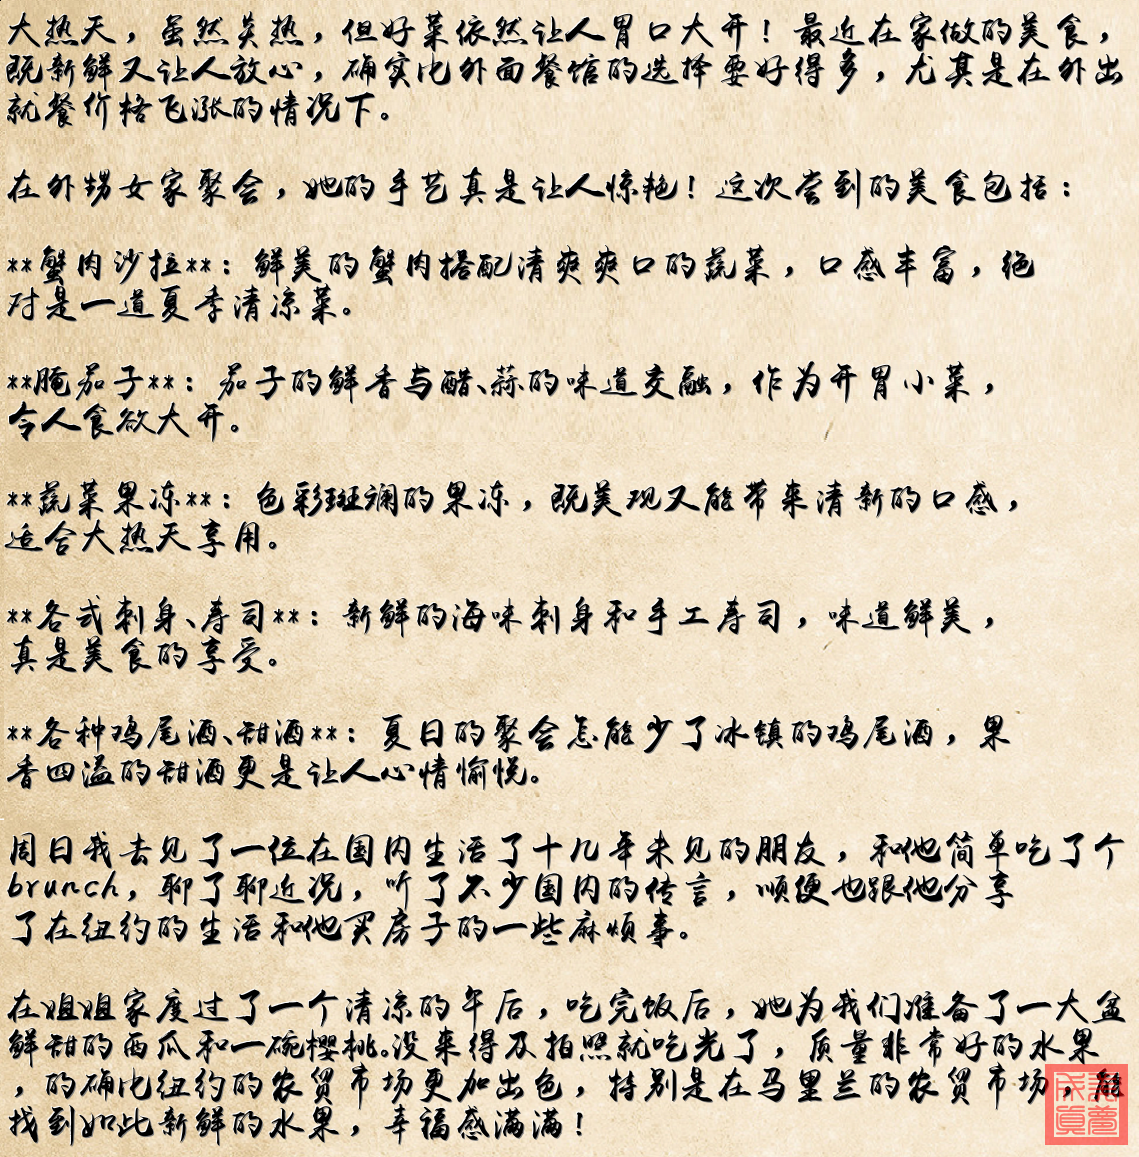 大热天，虽然炎热，但好菜依然让人胃口大开！最近在家做的美食，
既新鲜又让人放心，确实比外面餐馆的选择要好得多，尤其是在外出
就餐价格飞涨的情况下。
在外甥女家聚会，她的手艺真是让人惊艳！这次尝到的美食包括：
**蟹肉沙拉**：鲜美的蟹肉搭配清爽爽口的蔬菜，口感丰富，绝
对是一道夏季清凉菜。
**腌茄子**：茄子的鲜香与醋、蒜的味道交融，作为开胃小菜，
令人食欲大开。
**蔬菜果冻**：色彩斑斓的果冻，既美观又能带来清新的口感，
适合大热天享用。
**各式刺身、寿司**：新鲜的海味刺身和手工寿司，味道鲜美，
真是美食的享受。
**各种鸡尾酒、甜酒**：夏日的聚会怎能少了冰镇的鸡尾酒，果
香四溢的甜酒更是让人心情愉悦。
周日我去见了一位在国内生活了十几年未见的朋友，和他简单吃了个
brunch，聊了聊近况，听了不少国内的传言，顺便也跟他分享
了在纽约的生活和他买房子的一些麻烦事。
在姐姐家度过了一个清凉的午后，吃完饭后，她为我们准备了一大盆
鲜甜的西瓜和一碗樱桃。没来得及拍照就吃光了，质量非常好的水果
，的确比纽约的农贸市场更加出色，特别是在马里兰的农贸市场，能
找到如此新鲜的水果，幸福感满满！